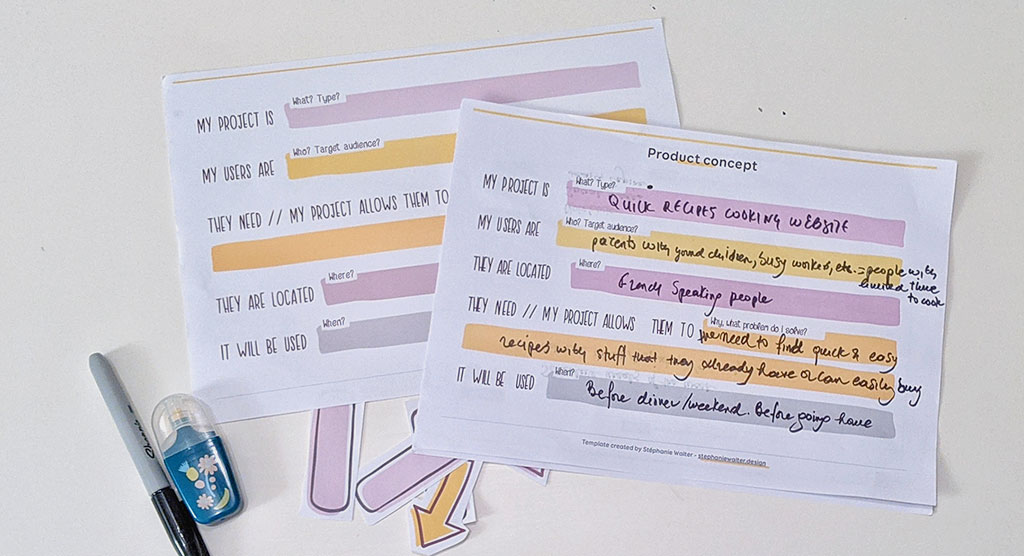 What? Type?
MY PROJECT IS
Who? Target audience?
MY USERS ARE
THEY NEED // MY PROJECT ALLOWS THEM TO
Where?
THEY ARE LOCATED
When?
IT WILL BE USED
Product concept
What? Type?
MY PROJECT IS QUICK RECIPES COOKING WEBSITE
Who? Target audience?
MY USERS ARE parents with young children, busy workers, etc. = people with
limited time
to cook
Where?
THEY ARE LOCATED French Speaking people
Why, what problem do I solve?
THEY NEED // MY PROJECT ALLOWS THEM TO need to find quick & easy
recipes with stuff that they already have or can easily buy
When?
IT WILL BE USED Before dinner/weekend. Before going home
Template created by Stéphanie Walter - stephaniewalter.design
Sharpie